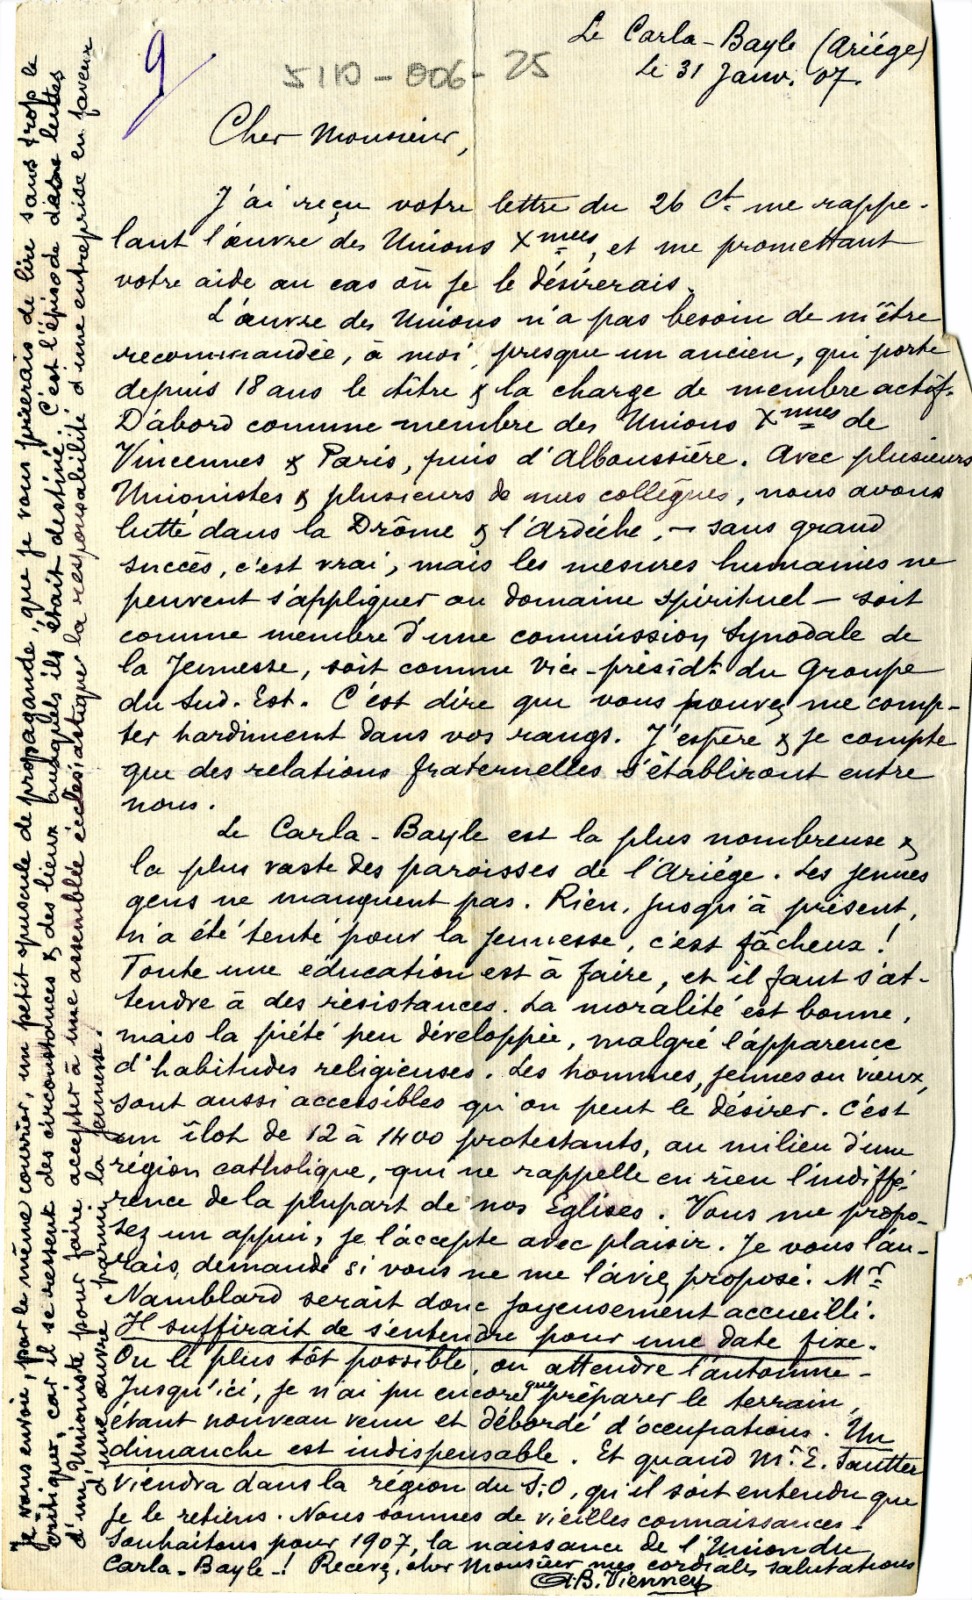 9
5110-006-25
Le Carla-Bayle (Ariége)
Le 31 Janv. 07.
Cher Monsieur,
J'ai reçu votre lettre du 26 Ct. me rappe-
lant l'œuvre des Unions Xnnes, et me promettant
votre aide au cas où je le désirerais.
L'œuvre des Unions n'a pas besoin de m'être
recommandée, à moi, presque un ancien, qui porte
depuis 18 ans le titre & la charge de membre actif.
D'abord comme membre des Unions Xnnes de
Vincennes & Paris, puis d'Alboussière. Avec plusieurs
Unionistes & plusieurs de mes collègues, nous avons
lutté dans la Drôme & l'Ardèche, - sans grand
succès, c'est vrai, mais les mesures humaines ne
peuvent s'appliquer au domaine spirituel - soit
comme membre d'une commission Synodale de
la Jeunesse, soit comme Vice-présidt. du Groupe
du Sud-Est. C'est dire que vous pouvez me comp-
ter hardiment dans vos rangs. J'espère & je compte
que des relations fraternelles s'établiront entre
nous.
Le Carla-Bayle est la plus nombreuse &
la plus vaste des paroisses de l'Ariége. Les jeunes
gens ne manquent pas. Rien, jusqu'à présent,
n'a été tenté pour la jeunesse, c'est fâcheux !
Toute une éducation est à faire, et il faut s'at-
tendre à des résistances. La moralité est bonne,
mais la piété peu développée, malgré l'apparence
d'habitudes religieuses. Les hommes, jeunes ou vieux,
sont aussi accessibles qu'on peut le désirer. C'est
un îlot de 12 à 1400 protestants, au milieu d'une
région catholique, qui ne rappelle en rien l'indiffé-
rence de la plupart de nos Eglises. Vous me propo-
sez un appui, je l'accepte avec plaisir. Je vous l'au-
rais demandé si vous ne me l'aviez proposé. Mr
Namblard serait donc joyeusement accueilli.
Il suffirait de s'entendre pour une date fixe.
Ou le plus tôt possible, ou attendre l'automne -
Jusqu'ici, je n'ai pu encore que préparer le terrain,
étant nouveau venu et débordé d'occupations. Un
dimanche est indispensable. Et quand Mr. E. Sautter
viendra dans la région du S.O, qu'il soit entendu que
je le retiens. Nous sommes de vieilles connaissances.
Souhaitons pour 1907, la naissance de l'Union du
Carla-Bayle-! Recevez, cher Monsieur mes cordiales salutations
A.B. Vienney
Je vous envoie, par le même courrier, un petit opuscule de propagande, que je vous prierais de lire sans trop le
critiquer, car il se ressent des circonstances & des lieux auxquels il était destiné. C'est l'épisode des luttes
d'un Unioniste pour faire accepter à une assemblée ecclésiastique la responsabilité d'une entreprise en faveur
d'une œuvre parmi la jeunesse.